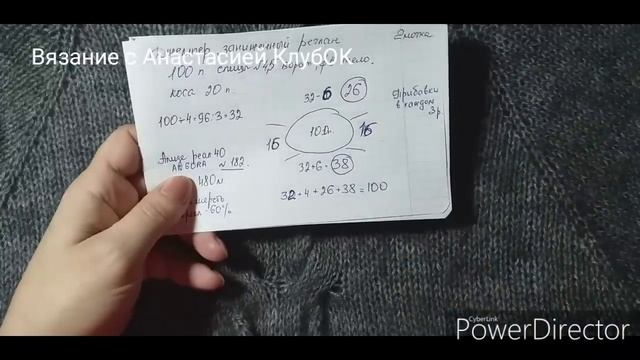 Вязание с Анастасией КлубОК
Джемпер заниженный реглан
100 п спицы №4,5
коса 20 п.
100-4=96:3=32
32-6 26
16 10 16
32+6= 38
32+4+26+38=100
Ализе реал 40
АНГОРА №182
480м
60%
2 мотка
Прибавки
в каждом
3 р.
CyberLink
PowerDirector